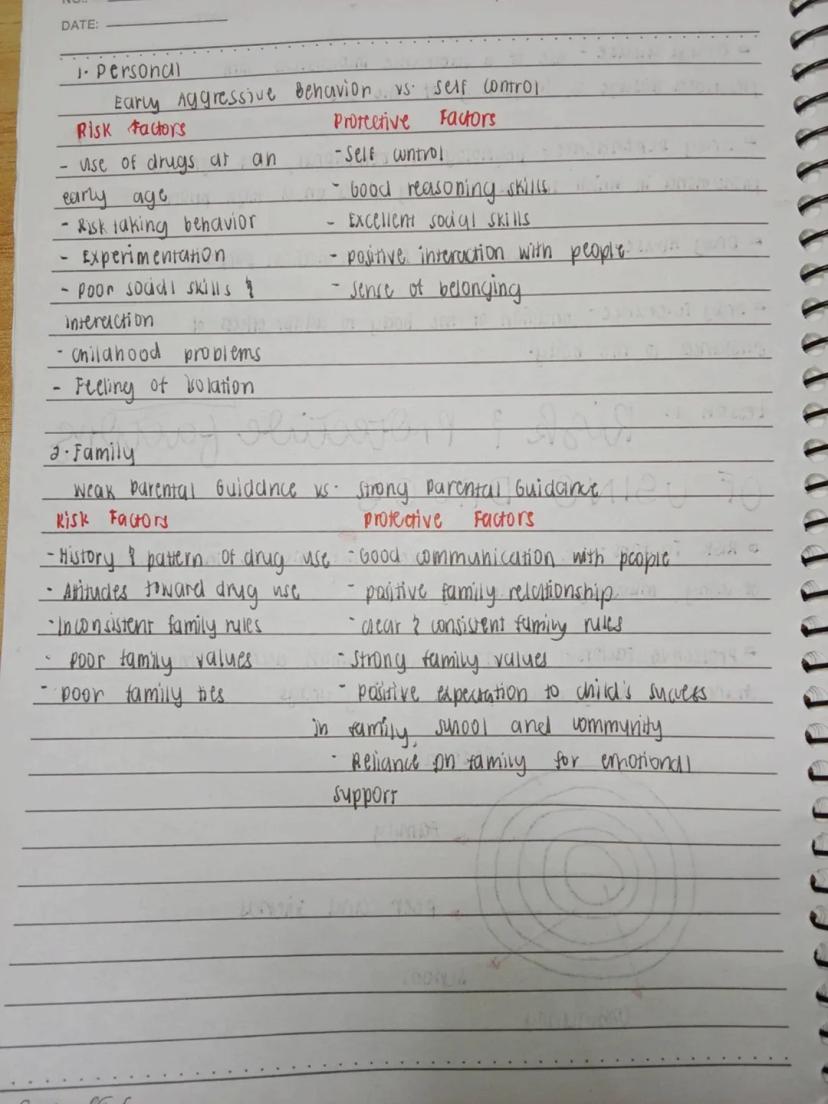 DATE:
1. Personal
Early Aggressive Behavior vs. self control
Risk Factors Protective Factors
- Use of drugs at an - Self control
early age - Good reasoning skills
- Risk taking behavior - Excellent social skills
- Experimentation - positive interaction with people
- Poor social skills & - sense of belonging
interaction
- childhood problems
- Feeling of isolation
2. Family
Weak Parental Guidance vs. Strong Parental Guidance
Risk Factors Protective Factors
- History & pattern of drug use - Good communication with people
- Attitudes toward drug use - positive family relationship
- Inconsistent family rules - clear & consistent family rules
- poor family values - strong family values
- poor family ties - positive expectation to child's success
in family, school and community
- Reliance on family for emotional
support